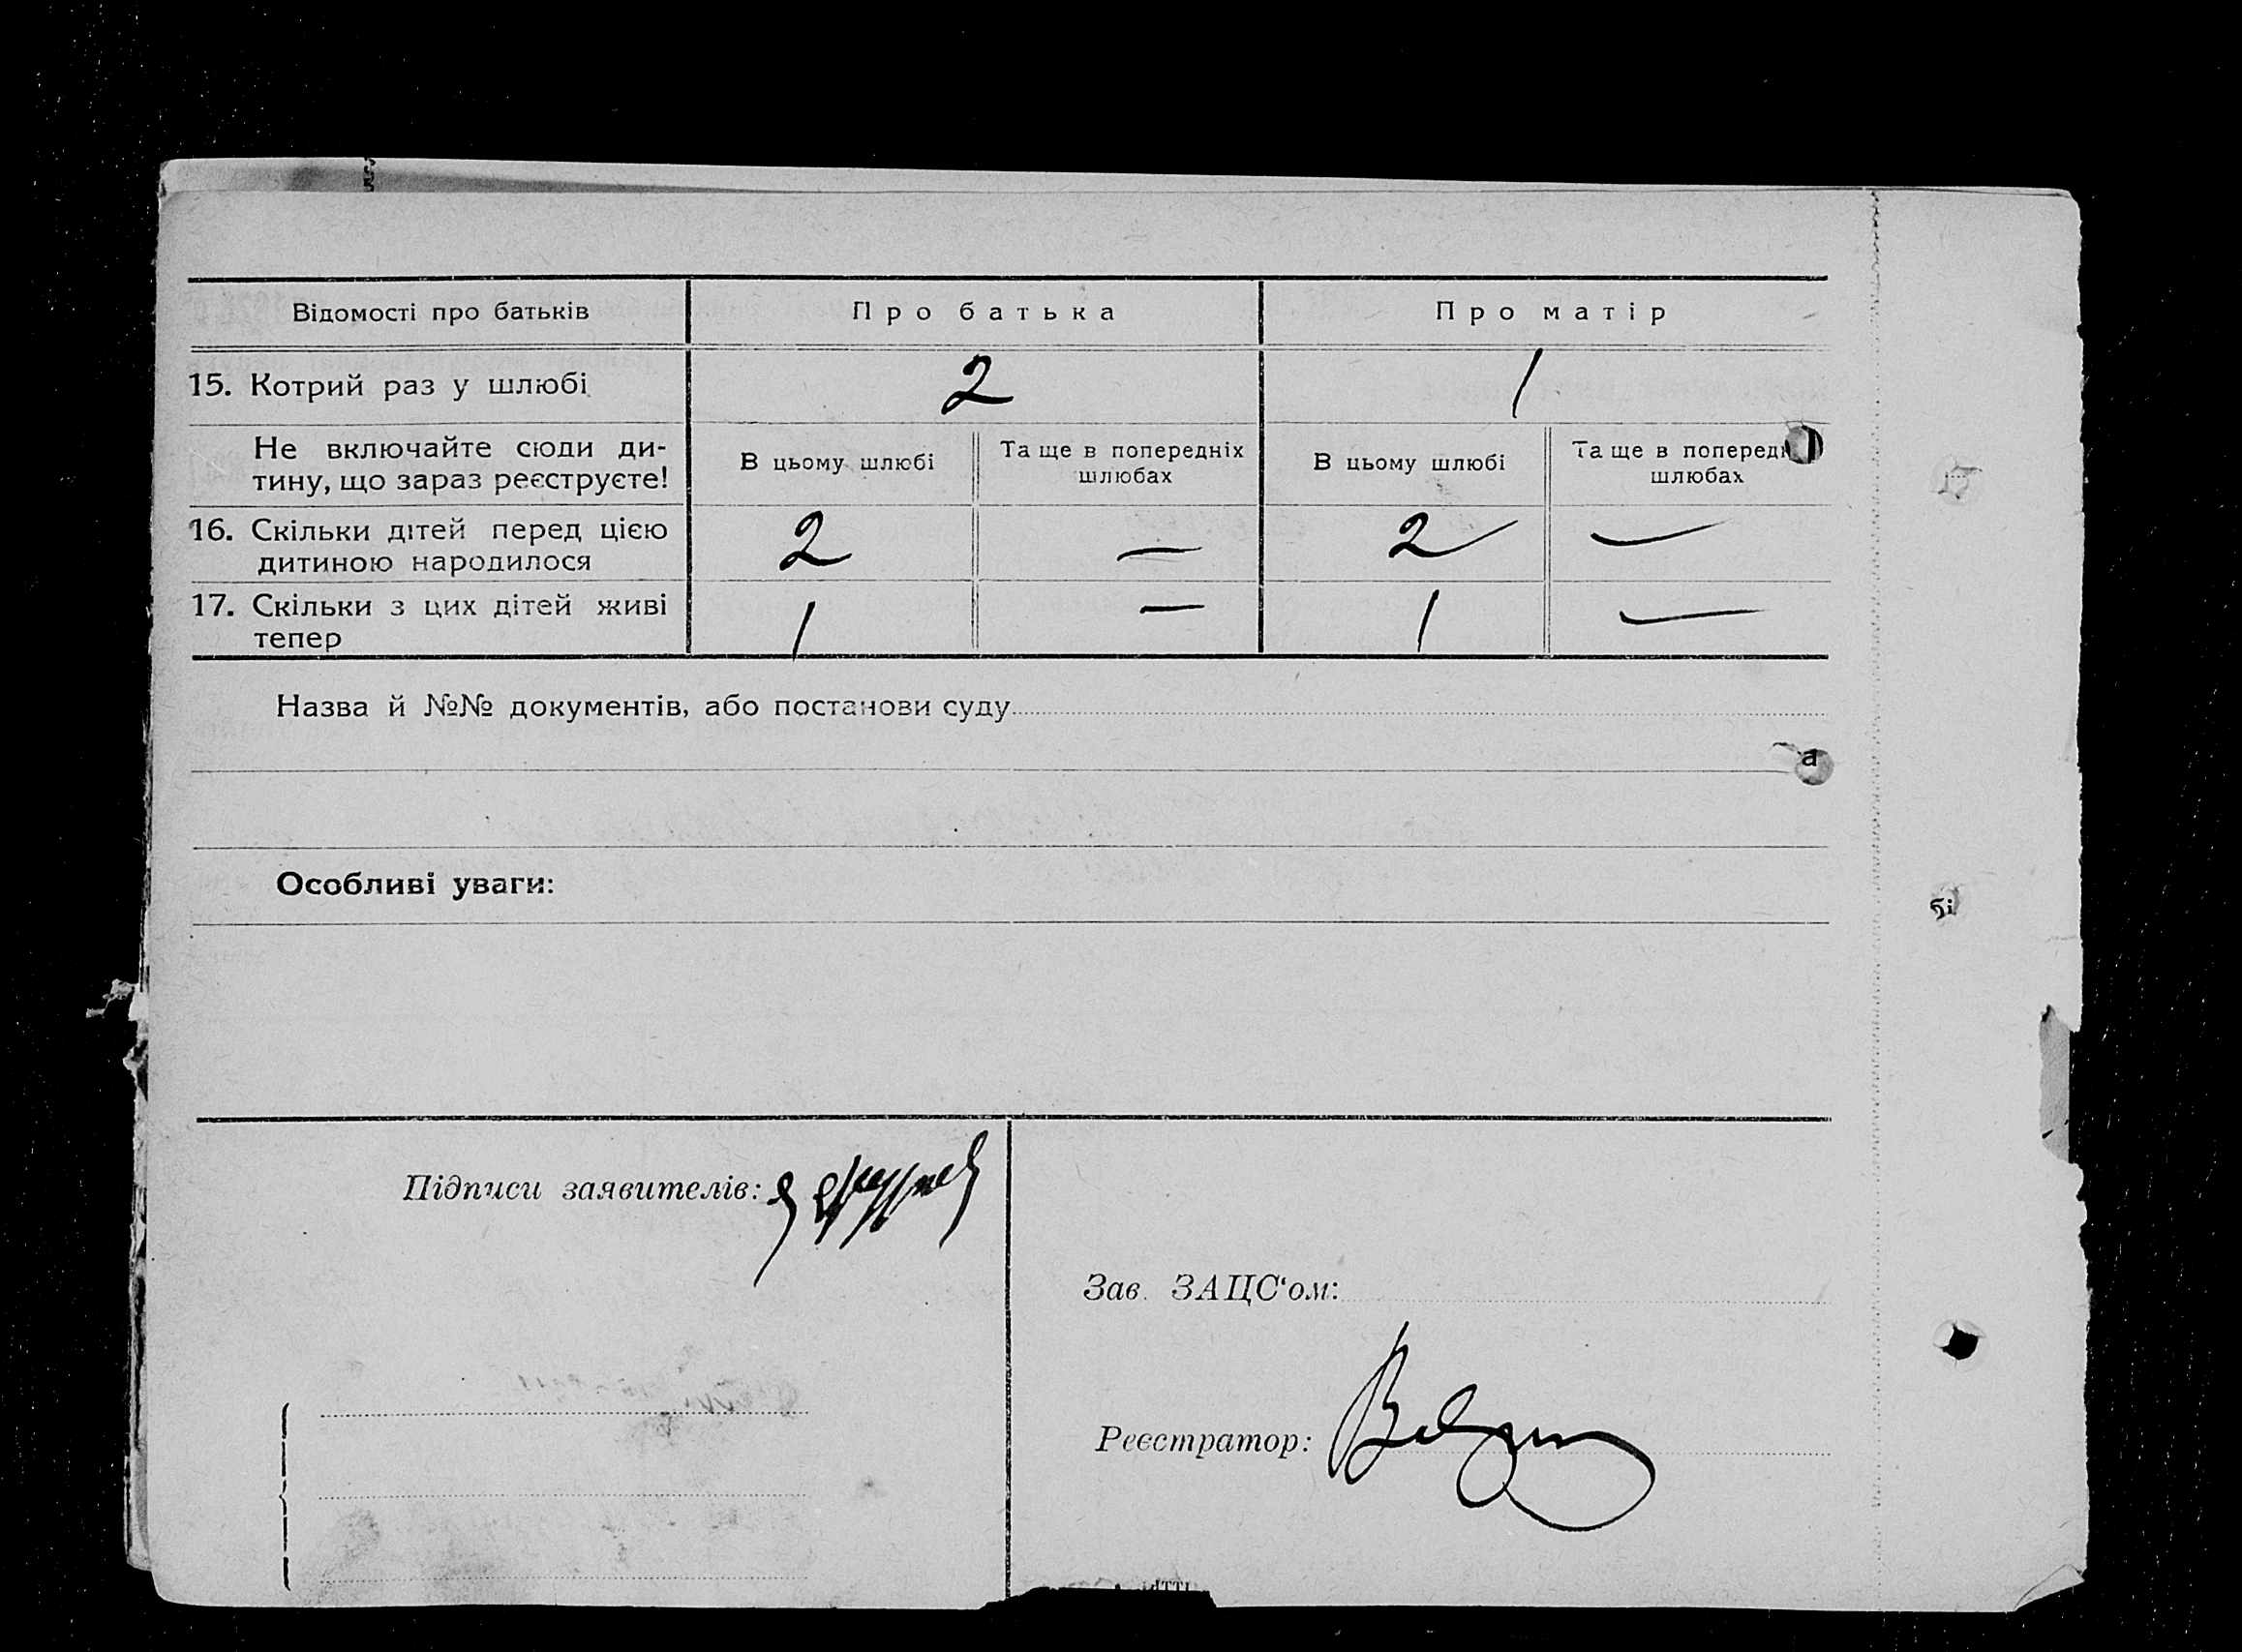 Відомості про батьків Про батька Про матір
15. Котрий раз у шлюбі 2 1
Не включайте сюди ди-
тину, що зараз реєструєте!
В цьому шлюбі
Та ще в попередніх
шлюбах
В цьому шлюбі
Та ще в
шлюбах
16. Скільки дітей перед цією
дитиною народилося
2 — 2 —
17. Скільки з цих дітей живі
тепер
1 — 1 —
Назва й №№ документів, або постанови суду
а
Особливі уваги:
Підписи заявителів:
Зав. ЗАЦС‘ом:
Реєстратор: